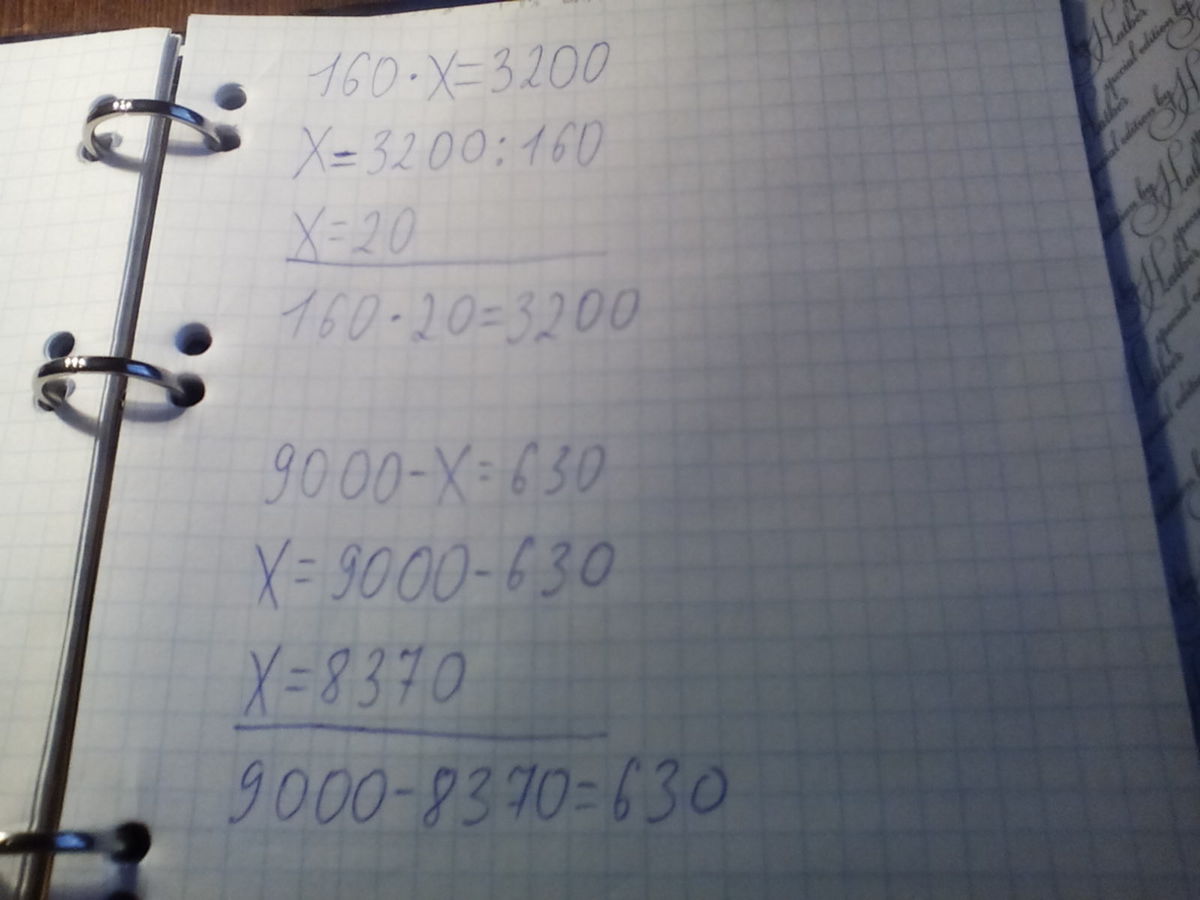 160·X=3200
X=3200:160
X=20
160·20=3200
9000-X=630
X=9000-630
X=8370
9000-8370=630
Hatber
special edition by
Hatber